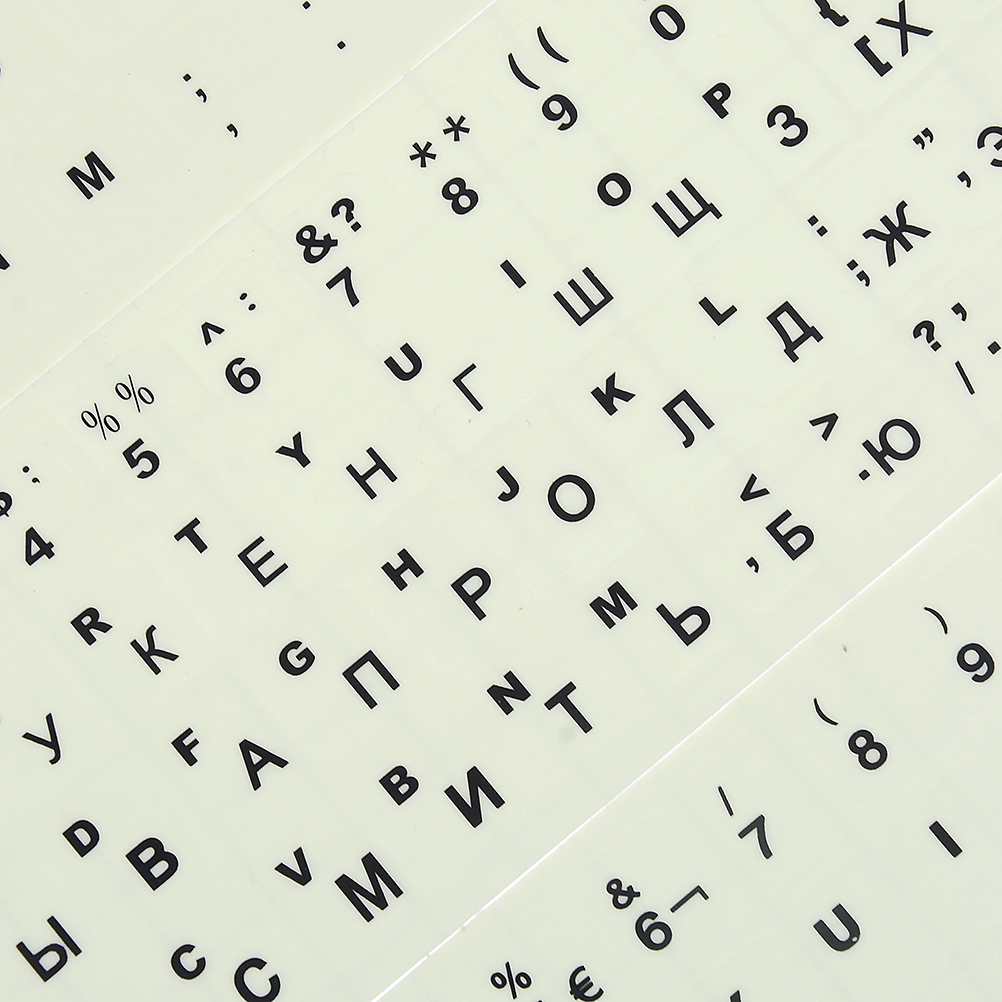 ; :
M , .
% % ^ : & ? * * ( (
; 4 5 6 7 8 9 0
R К T Е Y Н U Г I Ш O Щ P З [ Х
У D В F А G П H Р J О K Л L Д ; Ж , Э
Ы C С V М B И N Т M Ь < , Б > . Ю ? , / .
% & / ( )
€ 6 7 8 9
U I